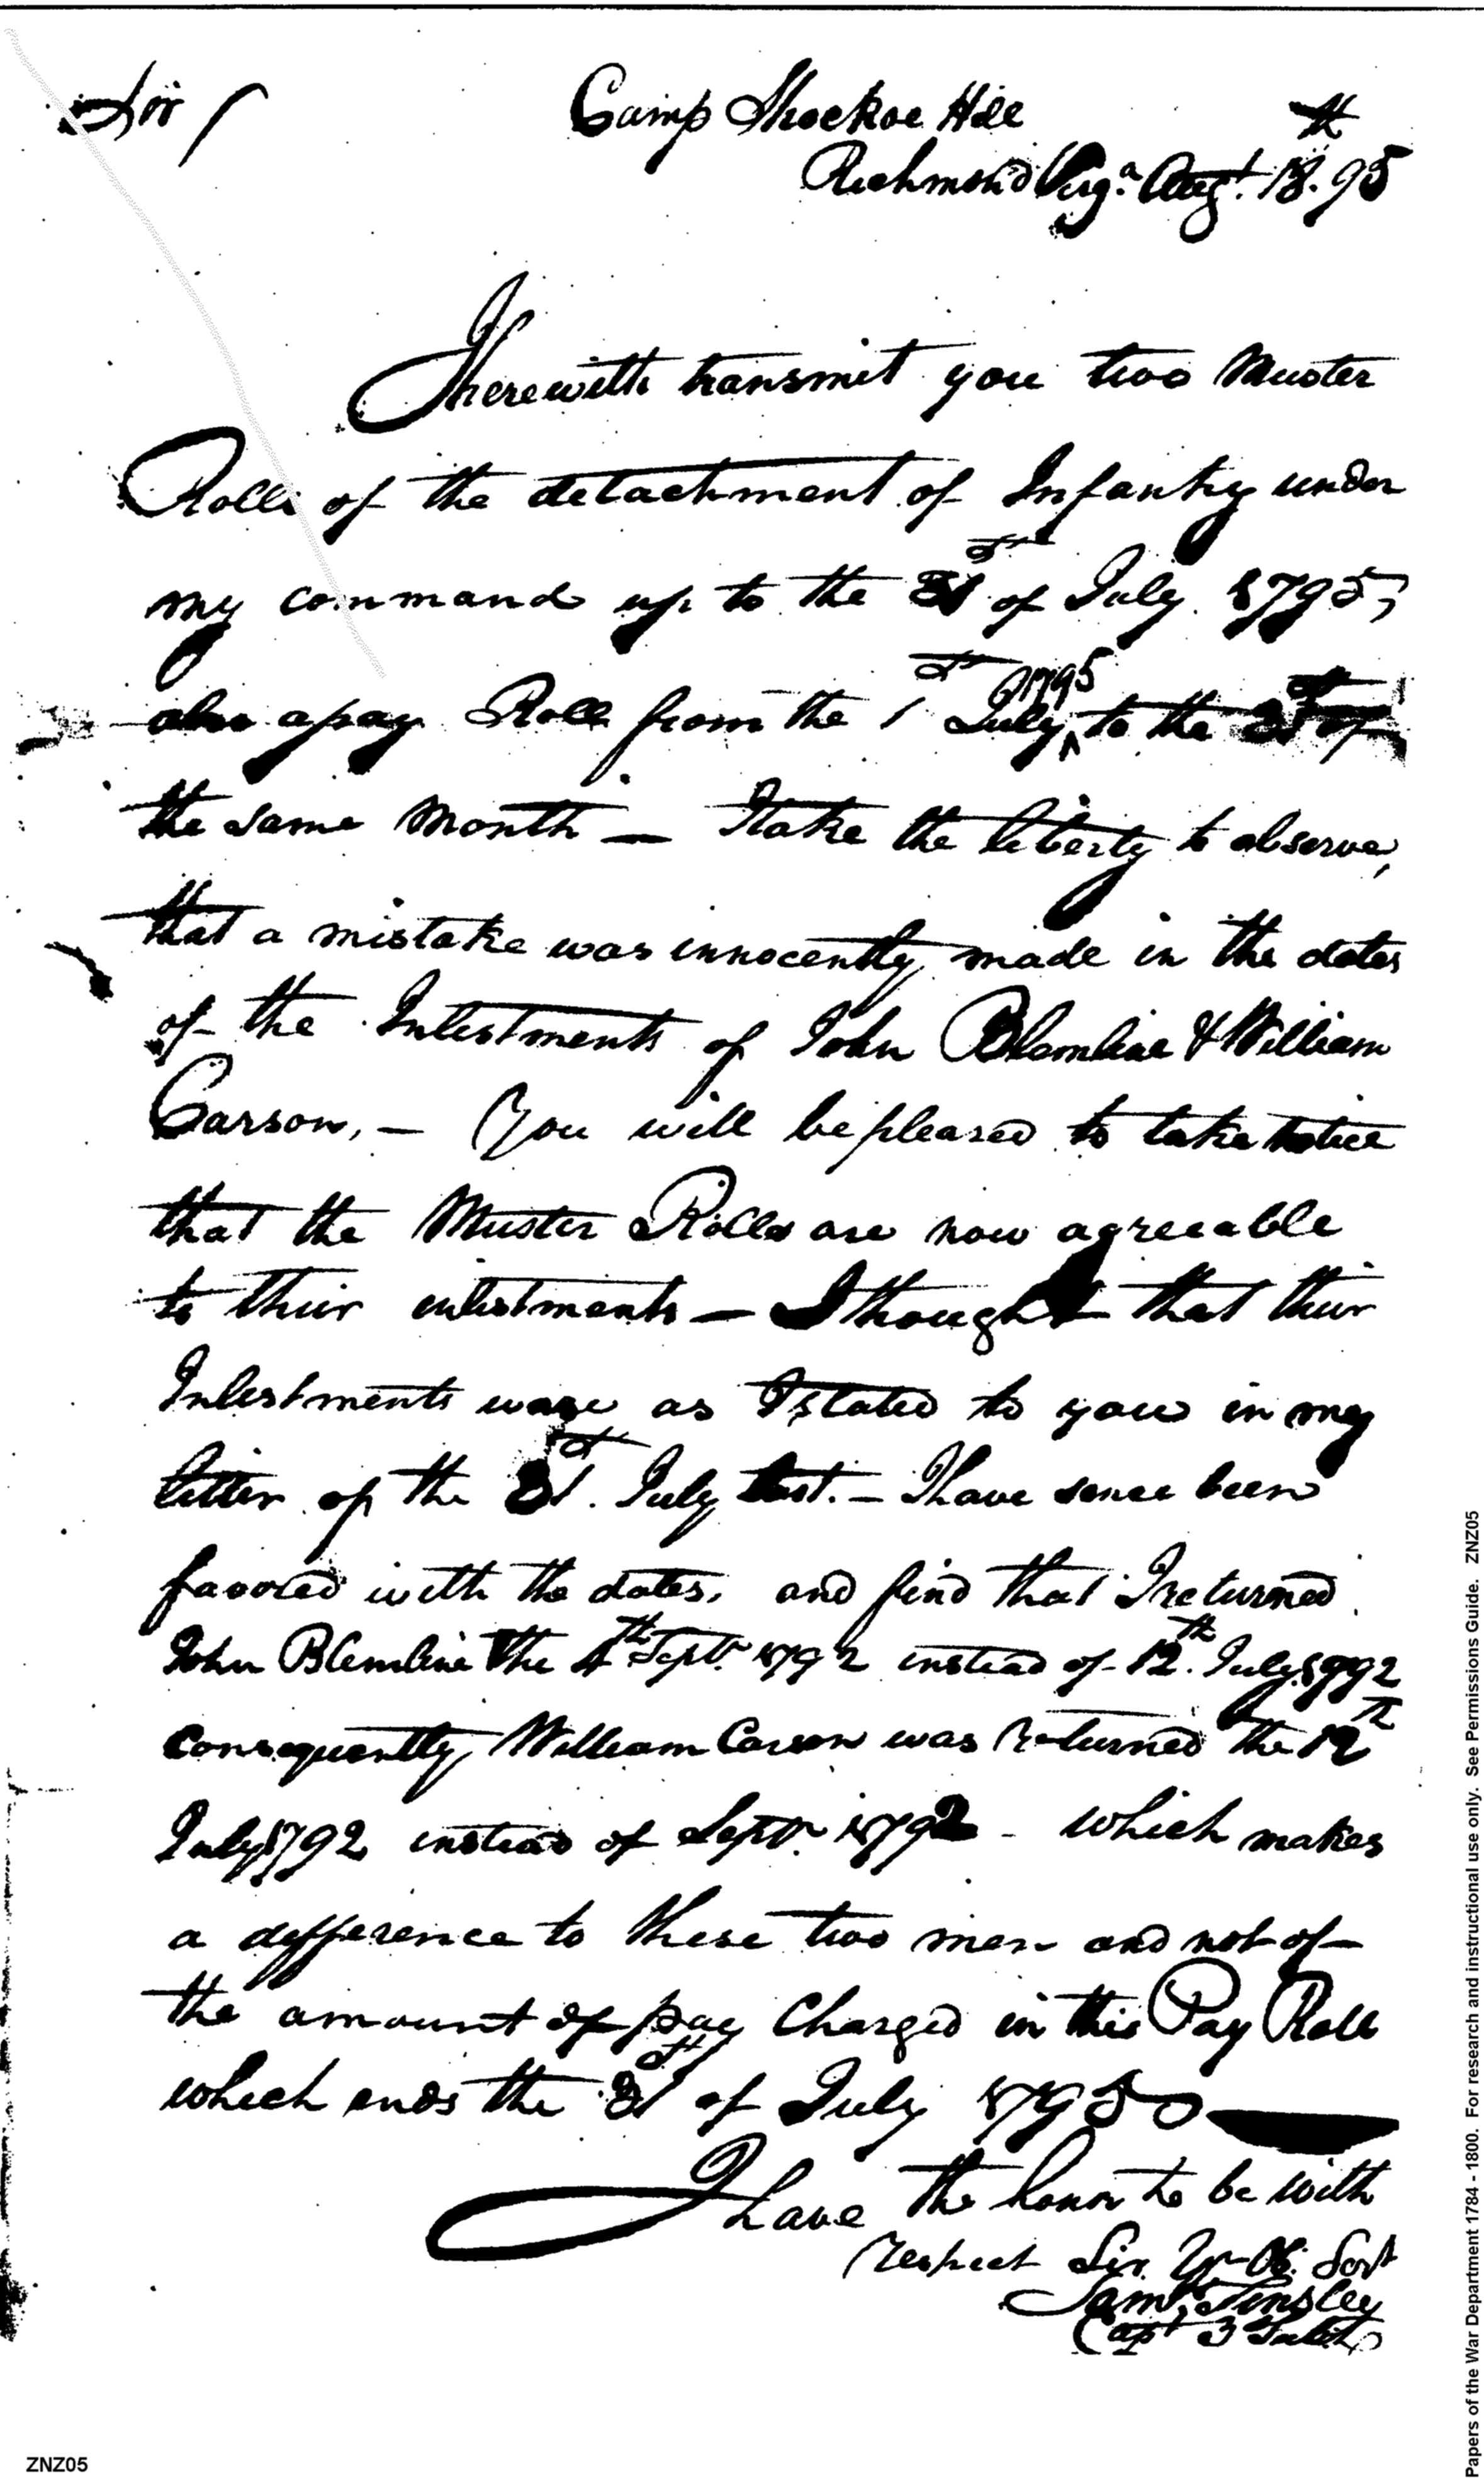 Sir
Camp Shockoe Hill
Richmond Virga. Augt. 18th. 95
I herewith transmit you two Muster
Rolls of the detachment of Infantry under
my command up to the 31st of July 1795,
also a pay Roll from the 1st July 1795 to the 31st of
the same Month — I take the liberty to observe,
that a mistake was innocently made in the dates
of the Inlistments of John Blamline & William
Carson, — You will be pleased to take notice
that the Muster Rolls are now agreeable
to their enlistments — I thought that their
Inlistments ware as I stated to you in my
letter of the 31st. July last. — I have since been
favored with the dates, and find that I returned
John Blemline the 4th Septr. 1792 instead of 12th. July 1792
consequently William Carson was returned the 12th
July 1792 instead of Septr. 1792 - which makes
a defference to these two men and not of
the amount of pay Charged in this Pay Roll
which ends the 31st of July 1795
I have the honor to be with
respect Sir Yr. Ob. Servt
Saml. Tinsley
Capt 3
ZNZ05
Papers of the War Department 1784 - 1800. For research and instructional use only. See Permissions Guide. ZNZ05